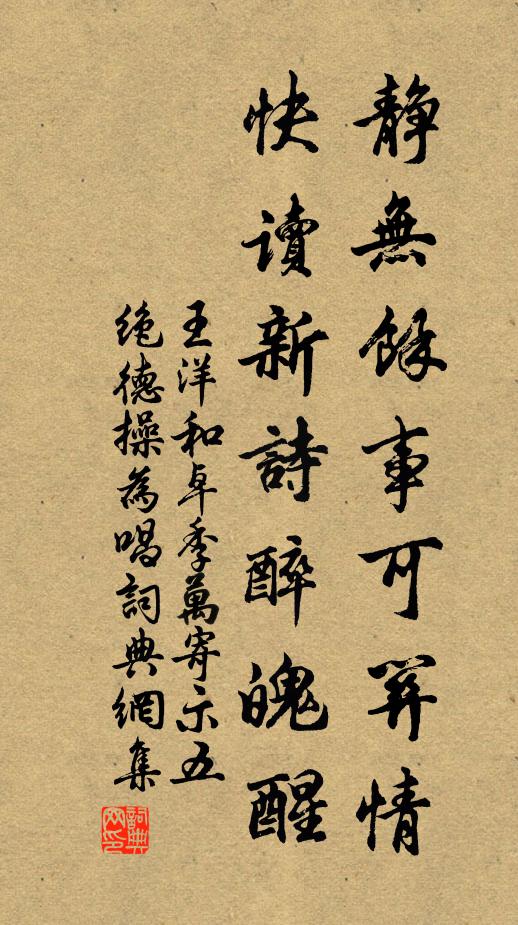 靜無餘事可關情
快讀新詩醉魄醒
王洋和卓季萬寄示五
絕德操為唱詞典網集
詞典網印